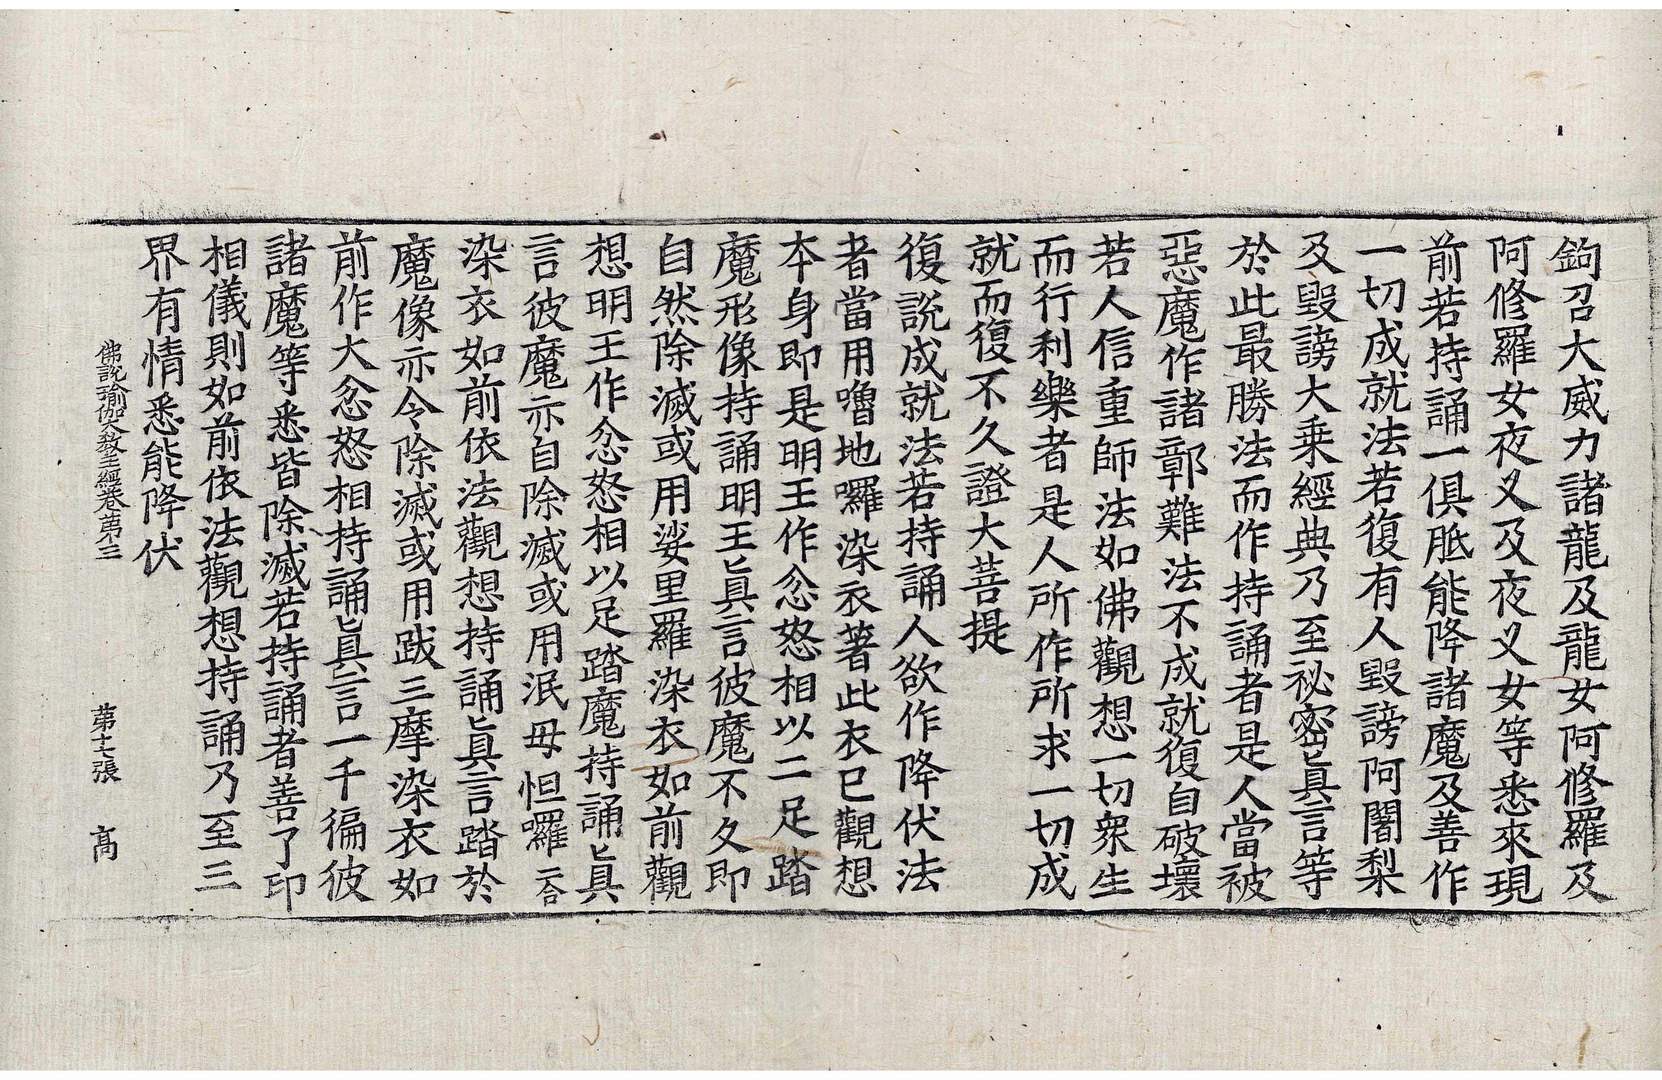 鉤召大威力諸龍及龍女阿修羅及
阿修羅女夜叉及夜叉女等悉來現
前若持誦一俱胝能降諸魔及善作
一切成就法若復有人毀謗阿闍梨
及毀謗大乗經典乃至祕密眞言等
於此最勝法而作持誦者是人當被
惡魔作諸鄣難法不成就復自破壞
若人信重師法如佛觀想一切衆生
而行利樂者是人所作所求一切成
就而復不久證大菩提
復說成就法若持誦人欲作降伏法
者當用嚕地囉染衣著此衣已觀想
本身即是明王作忿怒相以二足踏
魔形像持誦明王眞言彼魔不久即
自然除滅或用娑里羅染衣如前觀
想明王作忿怒相以足踏魔持誦眞
言彼魔亦自除滅或用泯毋怛囉二合
染衣如前依法觀想持誦眞言踏於
魔像亦令除滅或用跋三摩染衣如
前作大忿怒相持誦眞言一千徧彼
諸魔等悉皆除滅若持誦者善了印
相儀則如前依法觀想持誦乃至三
界有情悉能降伏
佛說瑜伽大教王經卷第三 第十七張 髙